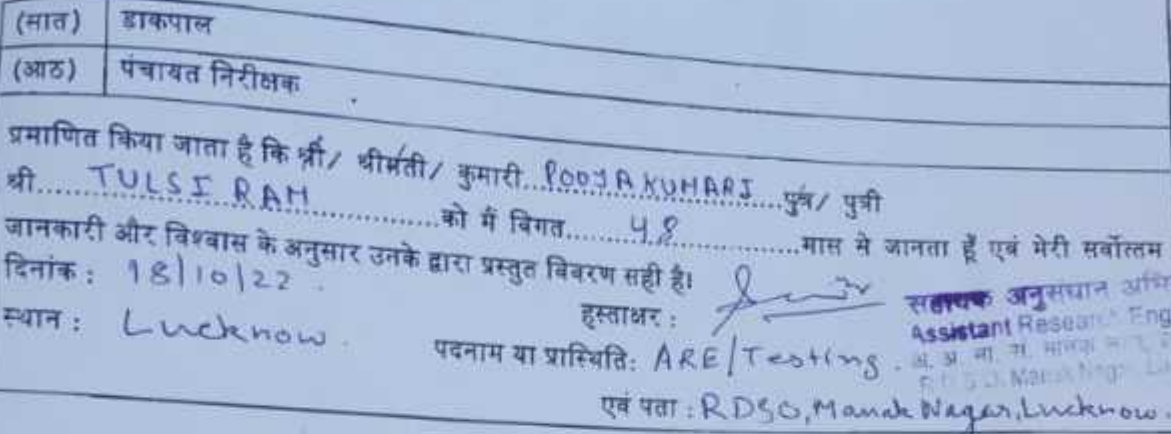 (सात) डाकपाल
(आठ) पंचायत निरीक्षक
प्रमाणित किया जाता है कि श्री/ श्रीमती/ कुमारी...POOJA KUMARI.....पुत्र/ पुत्री
श्री......TULSI RAM..................को मैं विगत......48..................मास से जानता हूँ एवं मेरी सर्वोत्तम
जानकारी और विश्वास के अनुसार उनके द्वारा प्रस्तुत विवरण सही है।
दिनांक : 18/10/22.
हस्ताक्षर :
सहायक अनुसंधान
Assistant Research Eng
स्थान : Lucknow.
पदनाम या प्रास्थिति: ARE/Testing.
एवं पता : RDSO, Manak Nagar, Lucknow.